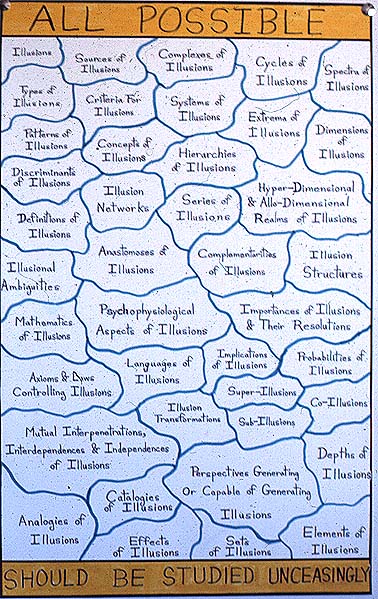 ALL POSSIBLE
Illusions
Sources of
Illusions
Complexes of
Illusions
Cycles of
Illusions
Spectra of
Illusions
Types of
Illusions
Criteria For
Illusions
Systems of
Illusions
Extrema of
Illusions
Dimensions
of
Illusions
Patterns of
Illusions
Concepts of
Illusions
Hierarchies
of Illusions
Discriminants
of Illusions
Illusion
Networks
Series of
Illusions
Hyper-Dimensional
& Allo-Dimensional
Realms of Illusions
Definitions of
Illusions
Anastomoses of
Illusions
Complementarities
of Illusions
Illusion
Structures
Illusional
Ambiguities
Psychophysiological
Aspects of Illusions
Importances of Illusions
& Their Resolutions
Mathematics
of Illusions
Languages of
Illusions
Implications
of Illusions
Probabilities of
Illusions
Axioms & Laws
Controlling Illusions
Super-Illusions
Co-Illusions
Illusion
Transformations
Sub-Illusions
Mutual Interpenetrations,
Interdependences & Independences
of Illusions
Perspectives Generating
Or Capable of Generating
Illusions
Depths of
Illusions
Catalogies
of Illusions
Analogies of
Illusions
Effects
of Illusions
Sets
of Illusions
Elements of
Illusions
SHOULD BE STUDIED UNCEASINGLY